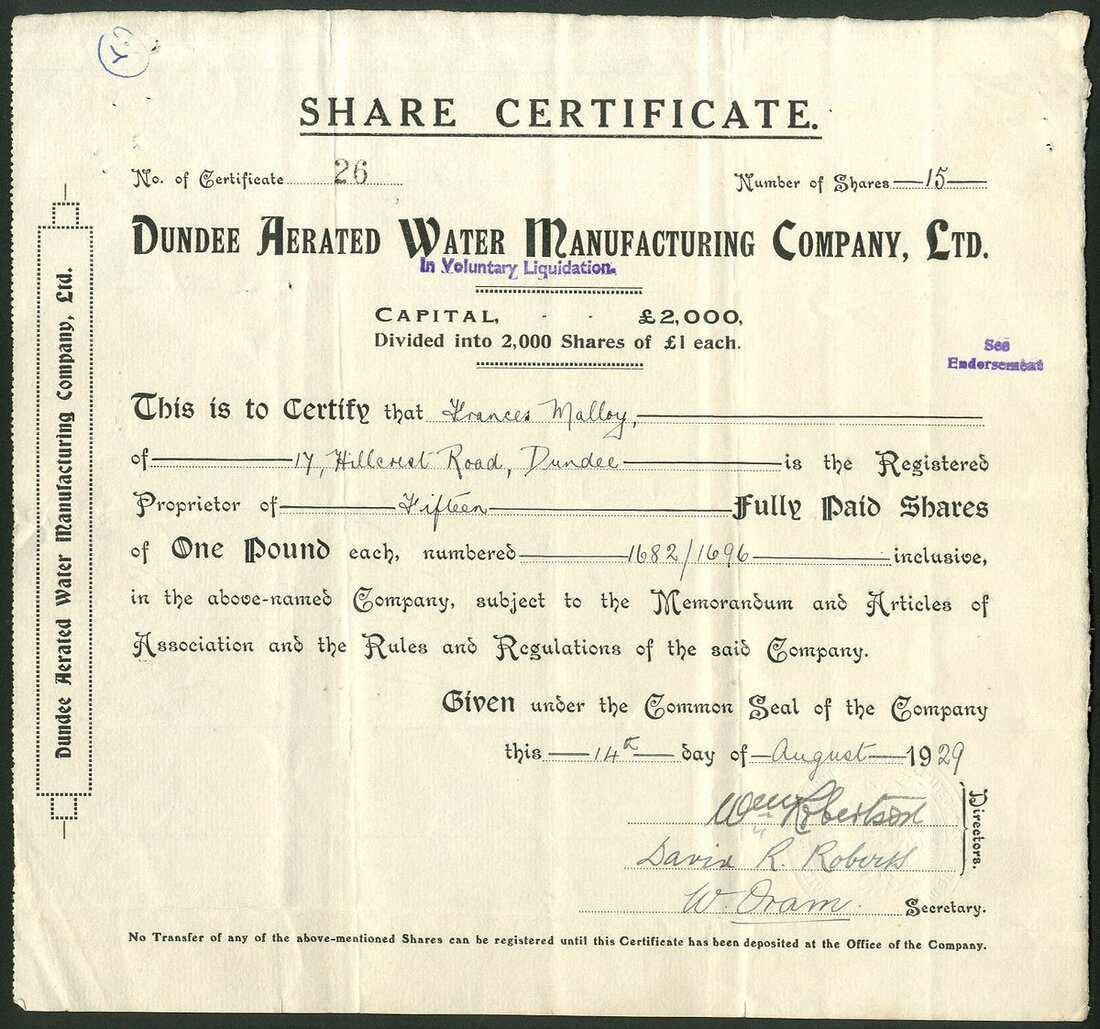 SHARE CERTIFICATE.
No. of Certificate 26 Number of Shares 15
DUNDEE AERATED WATER MANUFACTURING COMPANY, LTD.
In Voluntary Liquidation.
CAPITAL, - - £2,000,
Divided into 2,000 Shares of £1 each.
See
Endorsement
This is to Certify that Frances Malloy,
of 17, Hillcrest Road, Dundee is the Registered
Proprietor of Fifteen Fully Paid Shares
of One Pound each, numbered 1682/1696 inclusive,
in the above-named Company, subject to the Memorandum and Articles of
Association and the Rules and Regulations of the said Company.
Given under the Common Seal of the Company
this 14th day of August 1929
Wm Robertson
David R. Roberts
Directors.
W. Oram. Secretary.
No Transfer of any of the above-mentioned Shares can be registered until this Certificate has been deposited at the Office of the Company.
Dundee Aerated Water Manufacturing Company, Ltd.